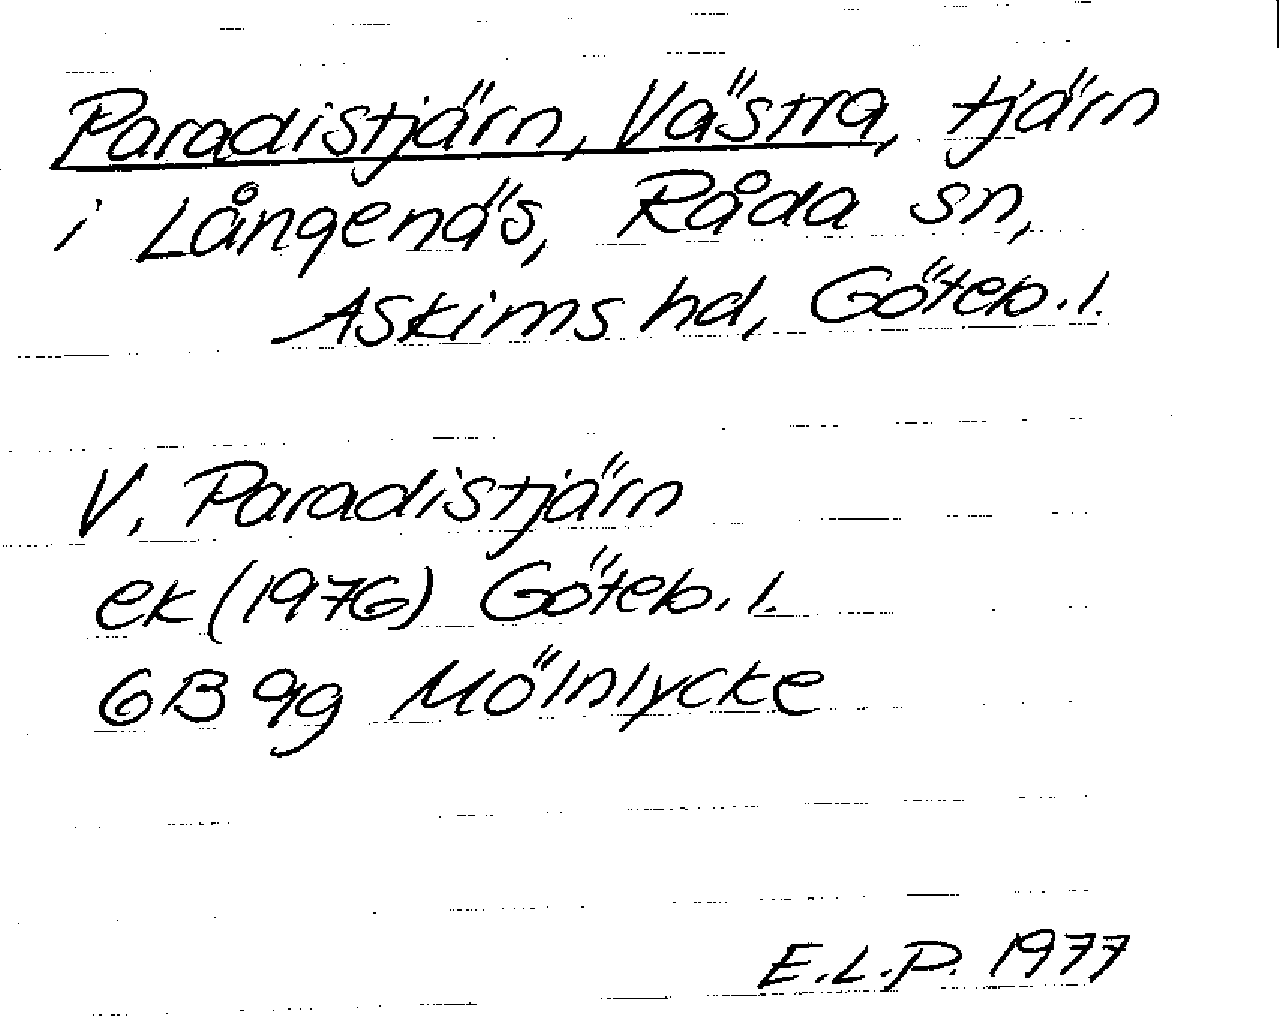 Paradistjärn, Västra, tjärn
i Långenäs, Råda sn,
Askims hd, Göteb. l.
V. Paradistjärn
ek (1976) Göteb. l.
6B 9g Mölnlycke
E.L.P. 1977